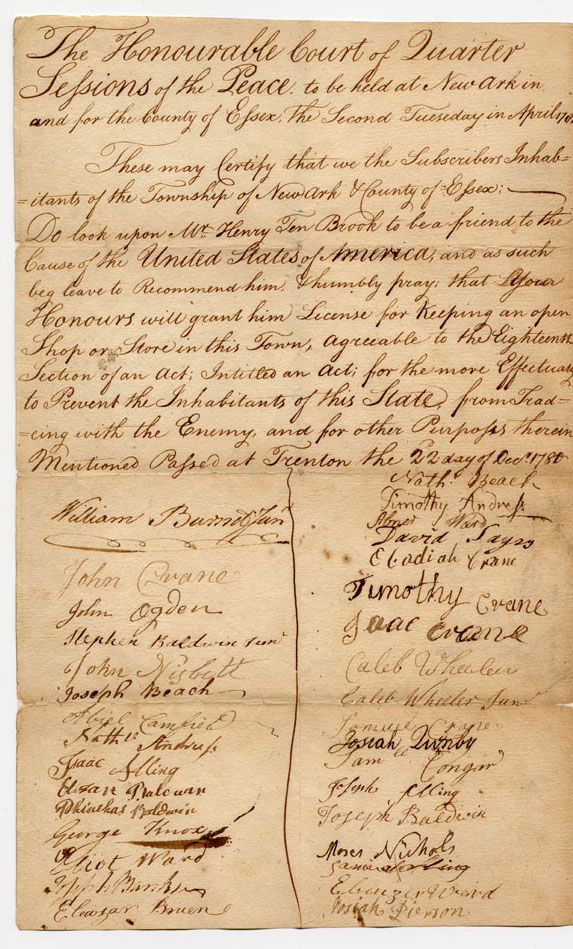 The Honourable Court of Quarter
Sessions of the Peace, to be held at New Ark in
and for the County of Essex, the Second Tueseday in April
These may Certify that we the Subscribers Inhab-
=itants of the Township of New Ark & County of Essex;
Do look upon Mr. Henry Ten Brook to be a friend to the
Cause of the United States of America, and as such
beg leave to Recommend him, & humbly pray; that Your
Honours will grant him License for Keeping an open
Shop or Store in this Town, Agreeable to the Eighteenth
Section of an Act; Intitled an Act; for the more Effectualy
to Prevent the Inhabitants of this State, from Trad-
=cing with the Enemy, and for other Purposes therein
Mentioned Passed at Trenton the 22 day of Decr. 1780
William Burnet Junr
John Crane
John Ogden
Stephen Baldwin Junr
John Nisbett
Joseph Beach
Abiel Camfield
Nathll Andruss
Isaac Alling
Baldwin
Phinehas Baldwin
George Knox
Eliot Ward
Joseph Banks
Eleazar Bruen
Nathl. Beach
Timothy Andruss
Abner Ward
David Sayrs
Obadiah Crane
Timothy Crane
Isaac Crane
Caleb Wheeler
Caleb Wheeler Junr
Samuel Crane
Josiah Quinby
Saml Congar
Joseph Alling
Joseph Baldwin
Moses Nichols
Ebenezer Ward
Josiah Pierson